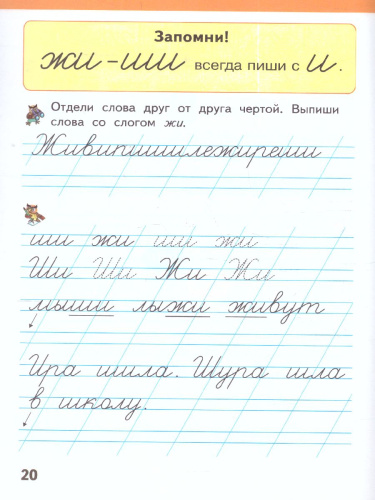 Запомни!
жи – ши всегда пиши с и.
Отдели слова друг от друга чертой. Выпиши
слова со слогом жи.
Живипишишлежиреши
ши жи ши жи
Ши Ши Жи Жи
мыши лыжи живут
Ира шила. Шура шла
в школу.
20